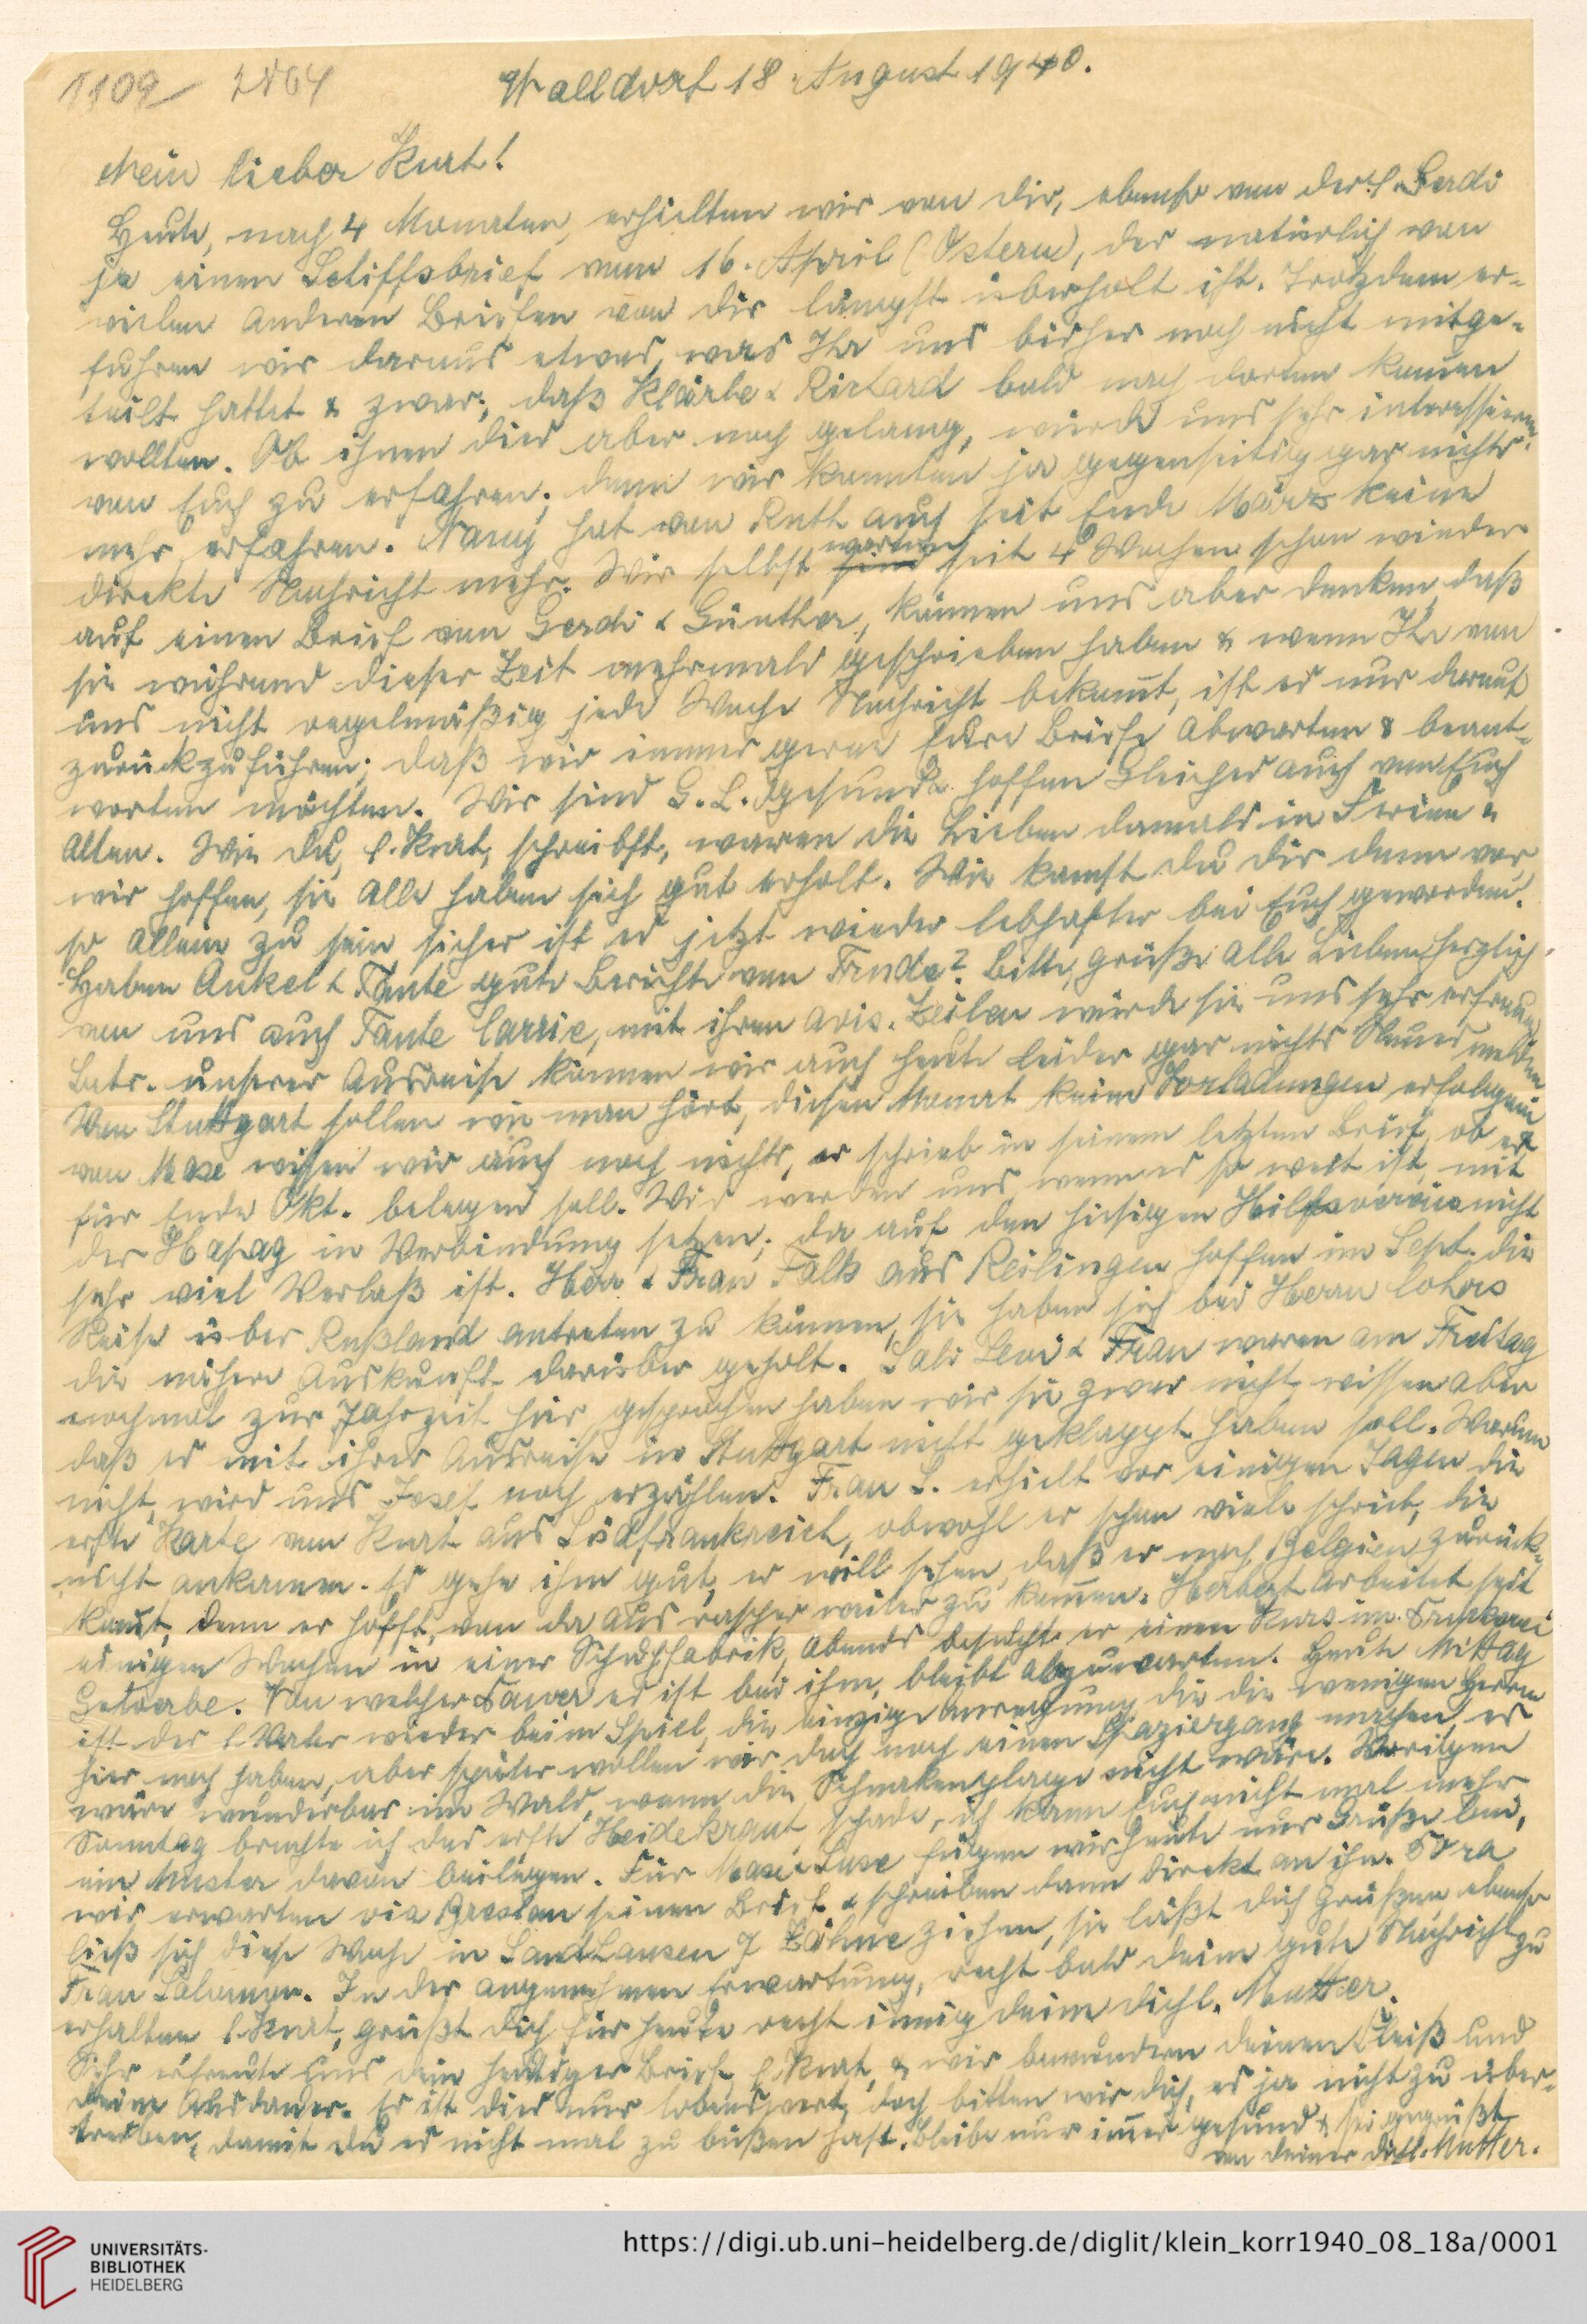 1109 2864
Walldorf 18. August 1940.
Mein lieber Kurt!
Heute, nach 4 Monaten, erhielten wir von dir, ebenso von der l. Gerdi
je einen Schiffsbrief vom 16. April (Ostern), der natürlich von
vielen anderen Briefen von dir längst überholt ist. Trotzdem er-
fuhren wir daraus etwas, was Ihr uns bisher noch nicht mitge-
teilt hattet & zwar, daß Klärle & Richard bald nach dorten kommen
wollten. Ob ihnen dies aber noch gelang, würde uns sehr interessieren
von Euch zu erfahren, denn wir konnten ja gegenseitig gar nichts
mehr erfahren. Nanny hat von Ruth auch seit Ende März keine
direkte Nachricht mehr. Wir selbst warten seit 4 Wochen schon wieder
auf einen Brief von Gerdi & Günther, können uns aber denken, daß
sie während dieser Zeit mehrmals geschrieben haben & wenn Ihr von
uns nicht regelmäßig jede Woche Nachricht bekommt, ist es nur darauf
zurückzuführen, daß wir immer gerne Eure Briefe abwarten & beant-
worten möchten. Wir sind G. L. gesund & hoffen Gleiches auch von Euch
Allen. Wie du, l. Kurt, schreibst, waren die Lieben damals in Ferien &
wir hoffen, sie alle haben sich gut erholt. Wie kamst du dir denn vor,
so allein zu sein, sicher ist es jetzt wieder lebhafter bei Euch geworden.
Haben Onkel & Tante gute Berichte von Trude? Bitte, grüße alle Lieben herzlich
von uns auch Tante Carrie, mit ihren avis. Zeilen würde sie uns sehr erfreuen
Betr. unserer Ausreise können wir auch heute leider gar nichts Neues melden
Von Stuttgart sollen wie man hört, diesen Monat keine Vorladungen erfolgen
von Max wissen wir auch noch nichts, er schrieb in seinem letzten Brief, ob er
für Ende Okt. belegen soll. Wir werden uns, wenn es so weit ist, mit
der Hapag in Verbindung setzen, da auf den hiesigen Hilfsverein nicht
sehr viel Verlaß ist. Herr & Frau Falk aus Reilingen hoffen im Sept. die
Reise über Rußland antreten zu können, sie haben sich bei Herrn
die nähere Auskunft darüber geholt. Sali Levi & Frau waren am Freitag
nochmal zur Jahrzeit hier, gesprochen haben wir sie zwar nicht, wissen aber
daß es mit ihrer Ausreise in Stuttgart nicht geklappt haben soll. Warum
nicht, wird uns Josef noch erzählen. Frau L. erhielt vor einigen Tagen die
erste Karte von Kurt aus Südfrankreich, obwohl er schon viele schrieb, die
nicht ankamen. Es gehe ihm gut, er will sehen, daß er nach Belgien zurück-
kommt, denn er hofft, von da aus rascher weiter zu kommen. Herbert arbeitet seit
einigen Wochen in einer Schuhfabrik, abends besucht er einen Kurs im
Gewerbe. Von welcher Dauer es ist bei ihm, bleibt abzuwarten. Heute Mittag
ist der l. Vater wieder beim Spiel, die einzige Anregung, die die wenigen Herren
hier noch haben, aber später wollen wir doch noch einen Spaziergang machen, es
wäre wunderbar im Wald, wenn die Schnakenplage nicht wäre. Vorigen
Sonntag brachte ich das erste Heidekraut, schade, ich kann Euch nicht mal mehr
ein Muster davon beilegen. Für Max & Luse fügen wir heute nur Grüße bei,
wir erwarten via Breslau seinen Brief & schreiben dann direkt an ihn.
ließ sich diese Woche in Sandhausen 7 Zähne ziehen, sie läßt dich grüßen, ebenso
Frau Salomon. In der angenehmen Erwartung, recht bald deine gute Nachricht zu
erhalten, l. Kurt, grüßt dich für heute recht innig deine dichl. Mutter.
Sehr erfreute uns dein heutiger Brief, l. Kurt, & wir bewundern deinen Fleiß und
deine Ausdauer. Es ist dies nur lobenswert, doch bitten wir dich, es ja nicht zu über-
treiben, damit du es nicht mal zu büßen hast. Bleibe nur immer gesund & sei gegrüßt
von deiner dichl. Mutter.
UNIVERSITÄTS-
BIBLIOTHEK
HEIDELBERG
https://digi.ub.uni-heidelberg.de/diglit/klein_korr1940_08_18a/0001